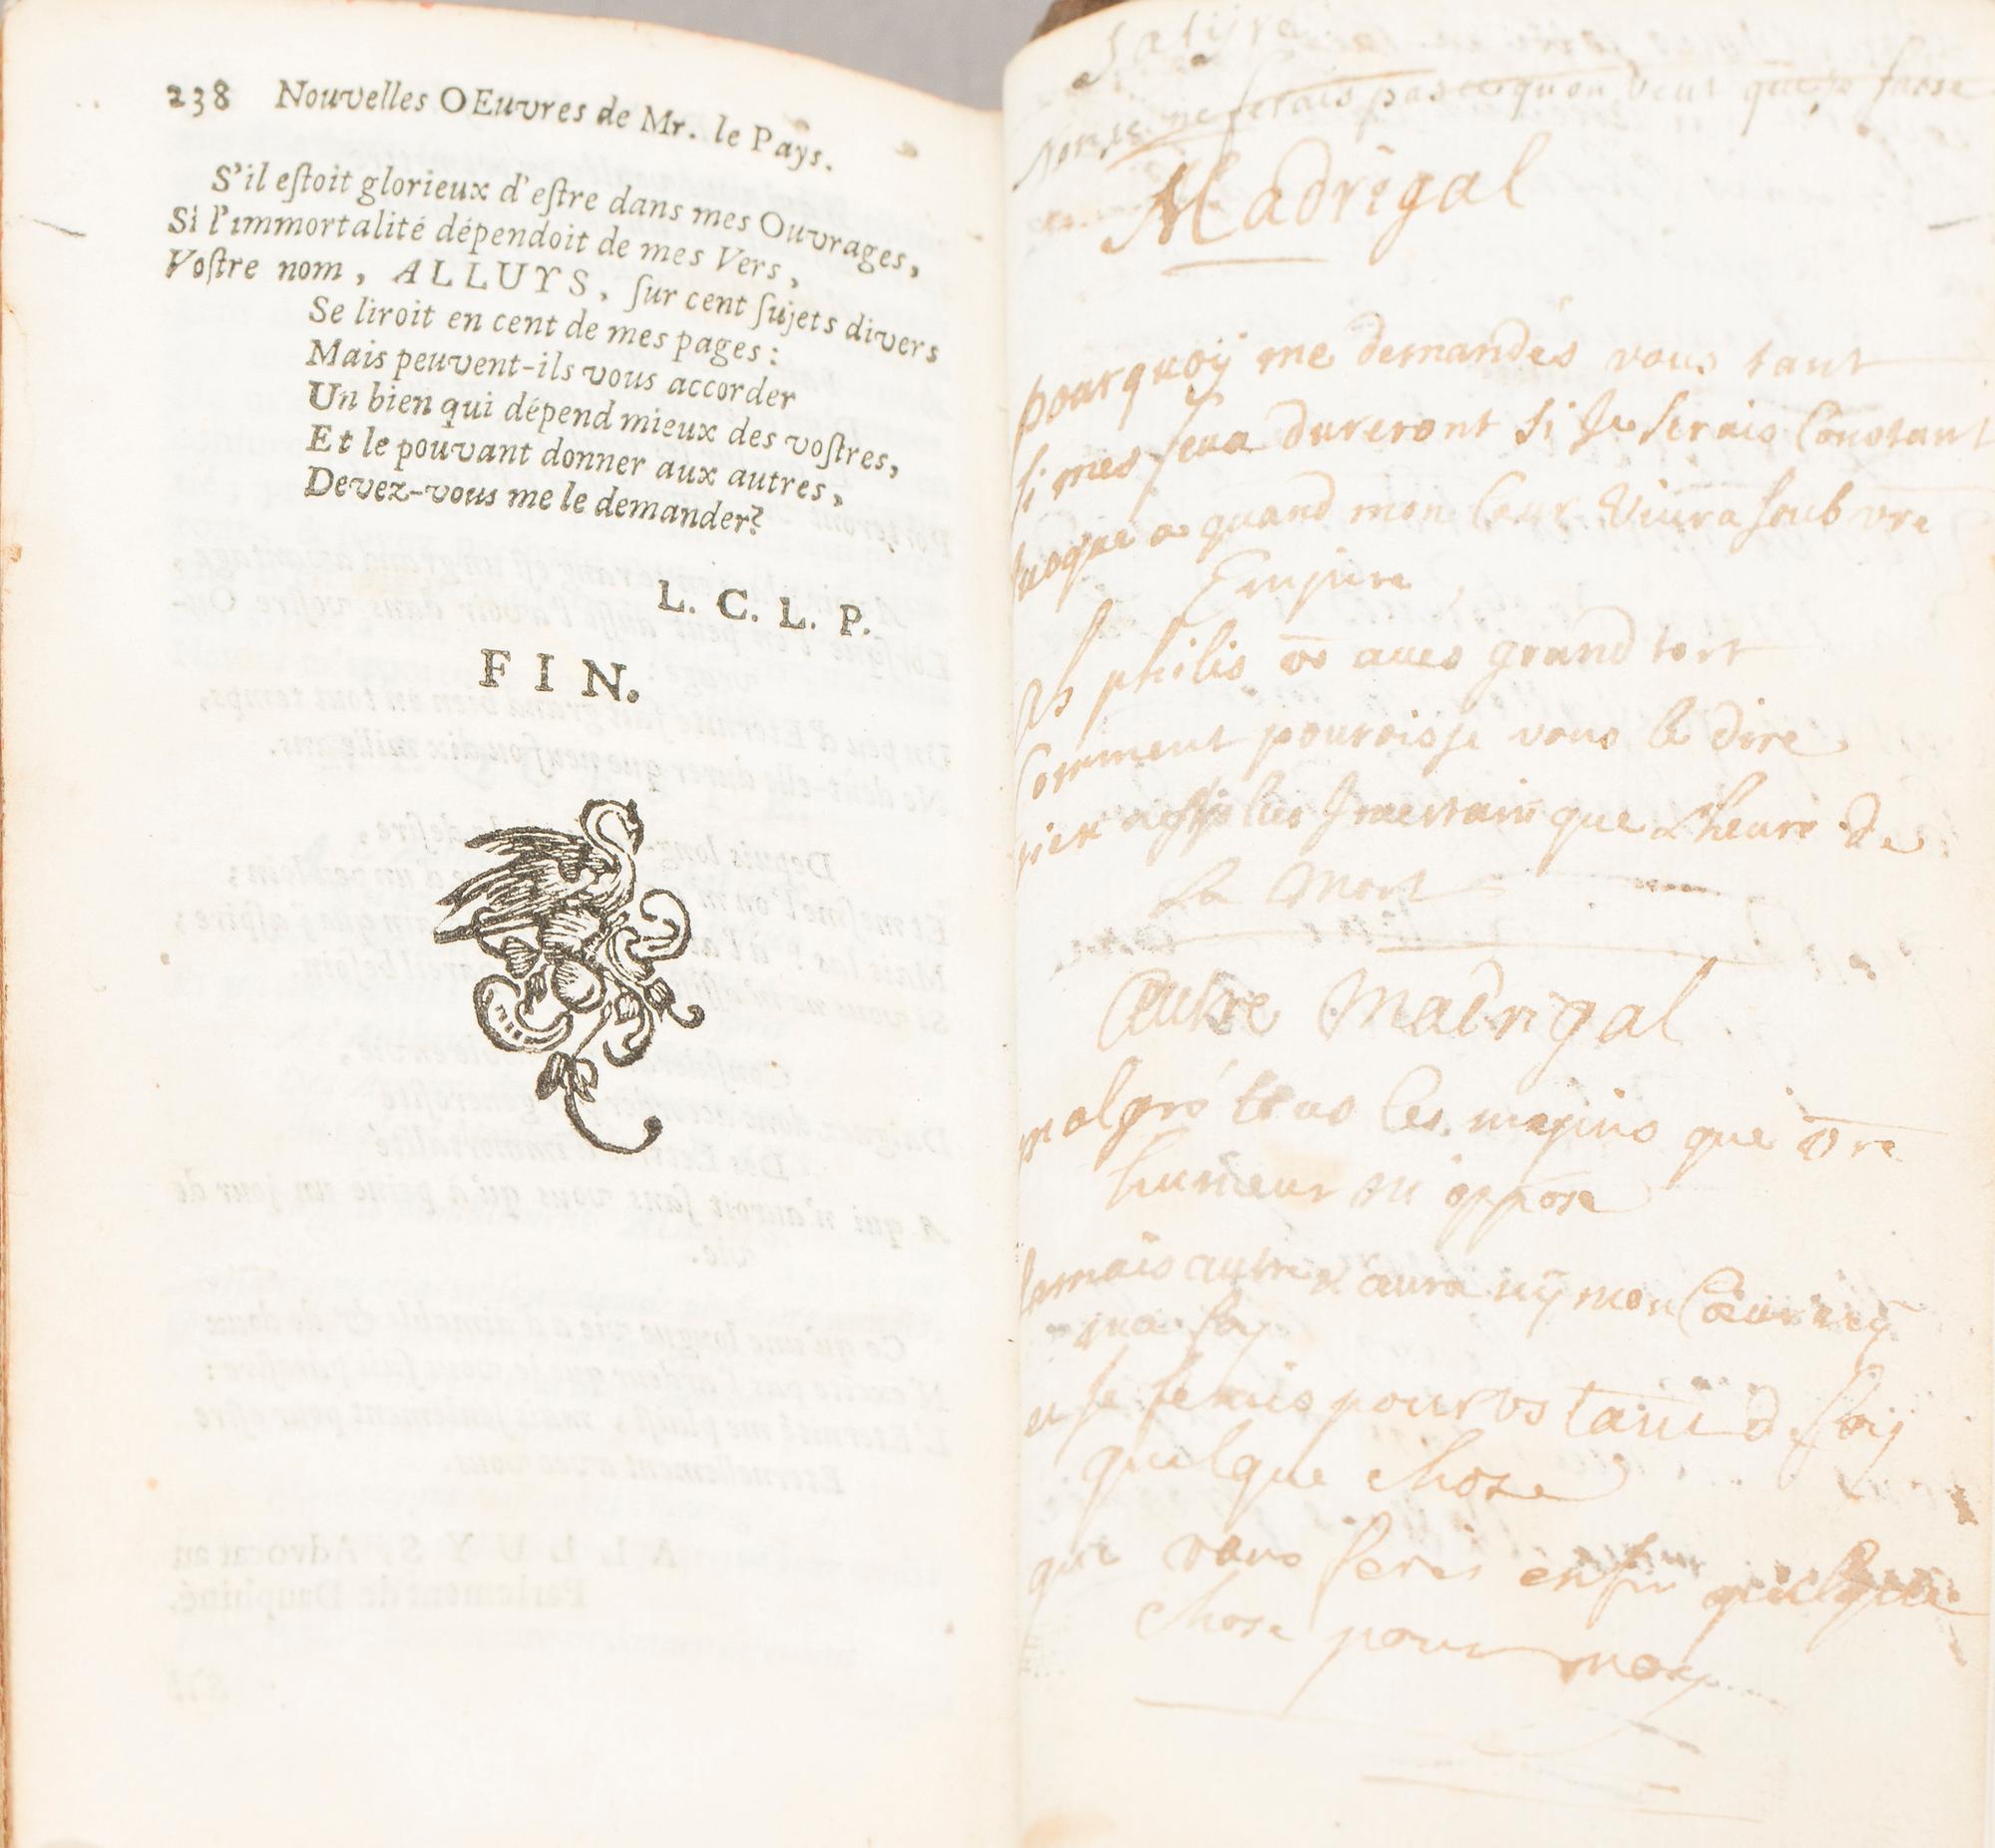 238 Nouvelles OEuvres de Mr. le Pays.
S'il eſtoit glorieux d'eſtre dans mes Ouvrages,
Si l'immortalité dépendoit de mes Vers,
Voſtre nom, ALLUYS, ſur cent ſujets divers
Se liroit en cent de mes pages:
Mais peuvent-ils vous accorder
Un bien qui dépend mieux des voſtres,
Et le pouvant donner aux autres,
Devez-vous me le demander?
L. C. L. P.
FIN.
Satyre
Non je ne ferais pas ce quon veut que je fasse
Madrigal
pourquoy me demandés vous tant
si mes feux dureront si Je serais Constant
Jusque a quand mon Cœur Vivra soub vre
Empire
Ah philis vs aves grand tort
Comment pourois je vous le dire
rien nest plus Incertain que Lheure de
La Mort
Autre Madrigal
malgré tous les mepris que vre
humeur m oppose
Jamais autre n aura ny mon Cœur ny
ma foy
et Je ferais pour vs tant d
quelque chose
que vous ferés enfin quelque
chose pour moy